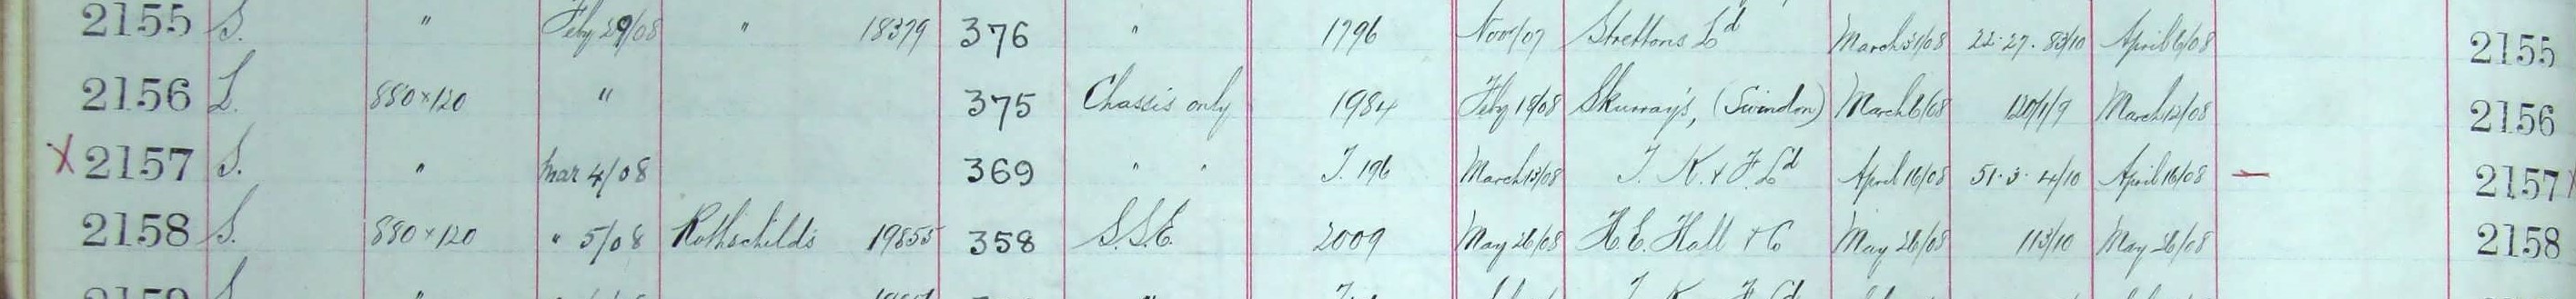 2155 S. " Feby 29/08 " 18379 376 " 1796 Nov /07 Strettons Ld March 31/08 22·27· 83/10 April 6/08 2155
2156 L. 880×120 " 375 Chassis only 1984 Feby 18/08 Skurray's, (Swindon) March 6/08 120/1/9 March 12/08 2156
X 2157 S. " Mar 4/08 369 " " T. 196 March 13/08 T. K. & F. Ld April 16/08 51·3· 4/10 April 16/08 — 2157
2158 S. 880×120 " 5/08 Rothschilds 19855 358 S.S.E. 2009 May 26/08 H.E. Hall & Co May 26/08 113/10 May 26/08 2158